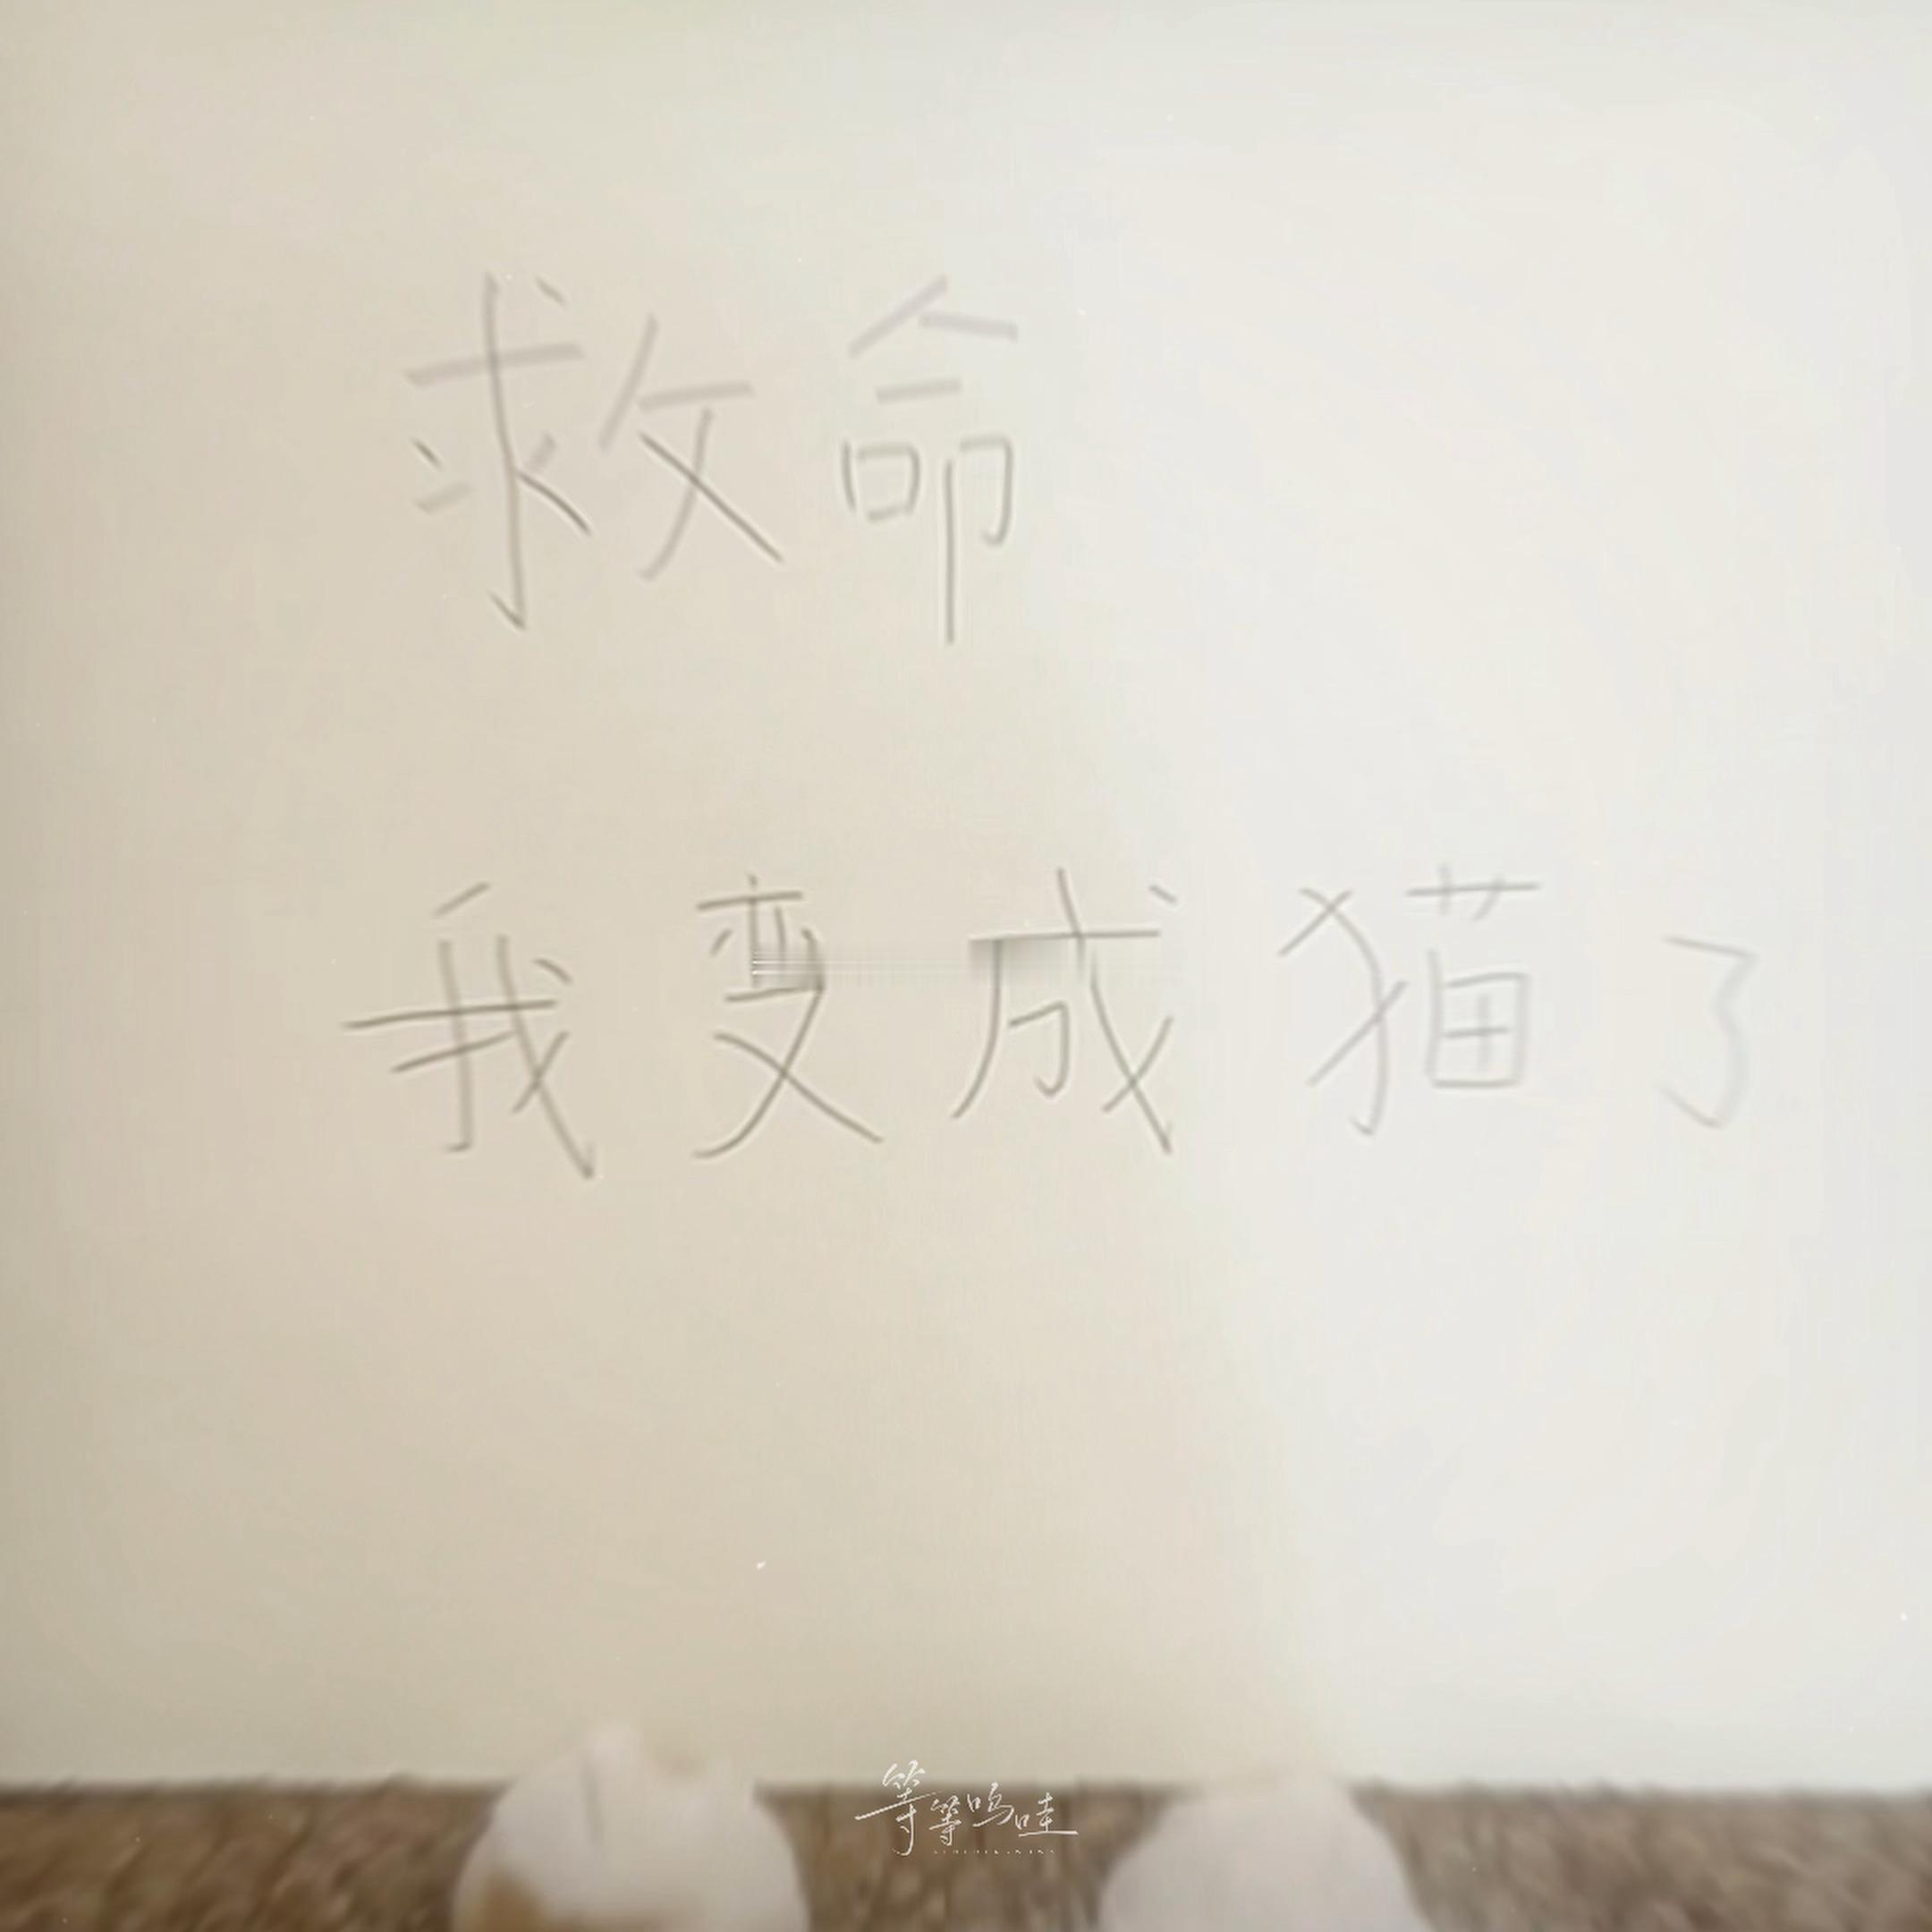 救命
我变成猫了
等等呜哇